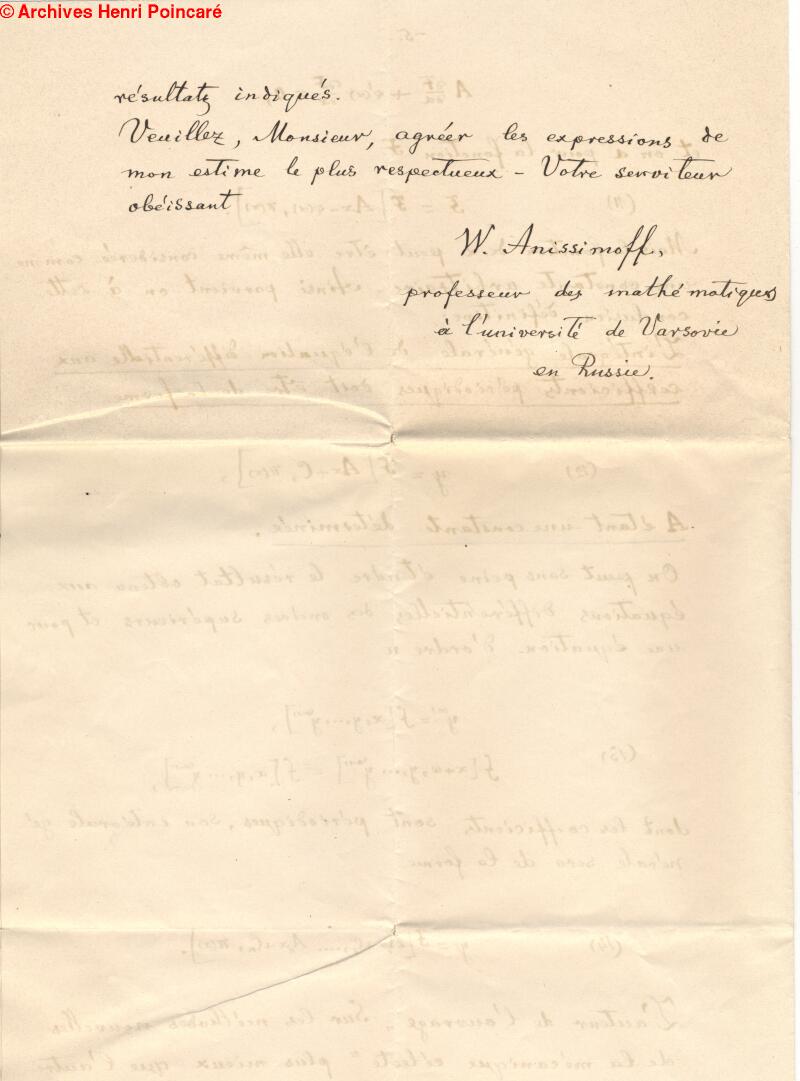 © Archives Henri Poincaré
résultats indiqués.
Veuillez, Monsieur, agréer les expressions de
mon estime le plus respectueux – Votre serviteur
obéissant
W. Anissimoff,
professeur des mathématiques
à l'université de Varsovie
en Russie.